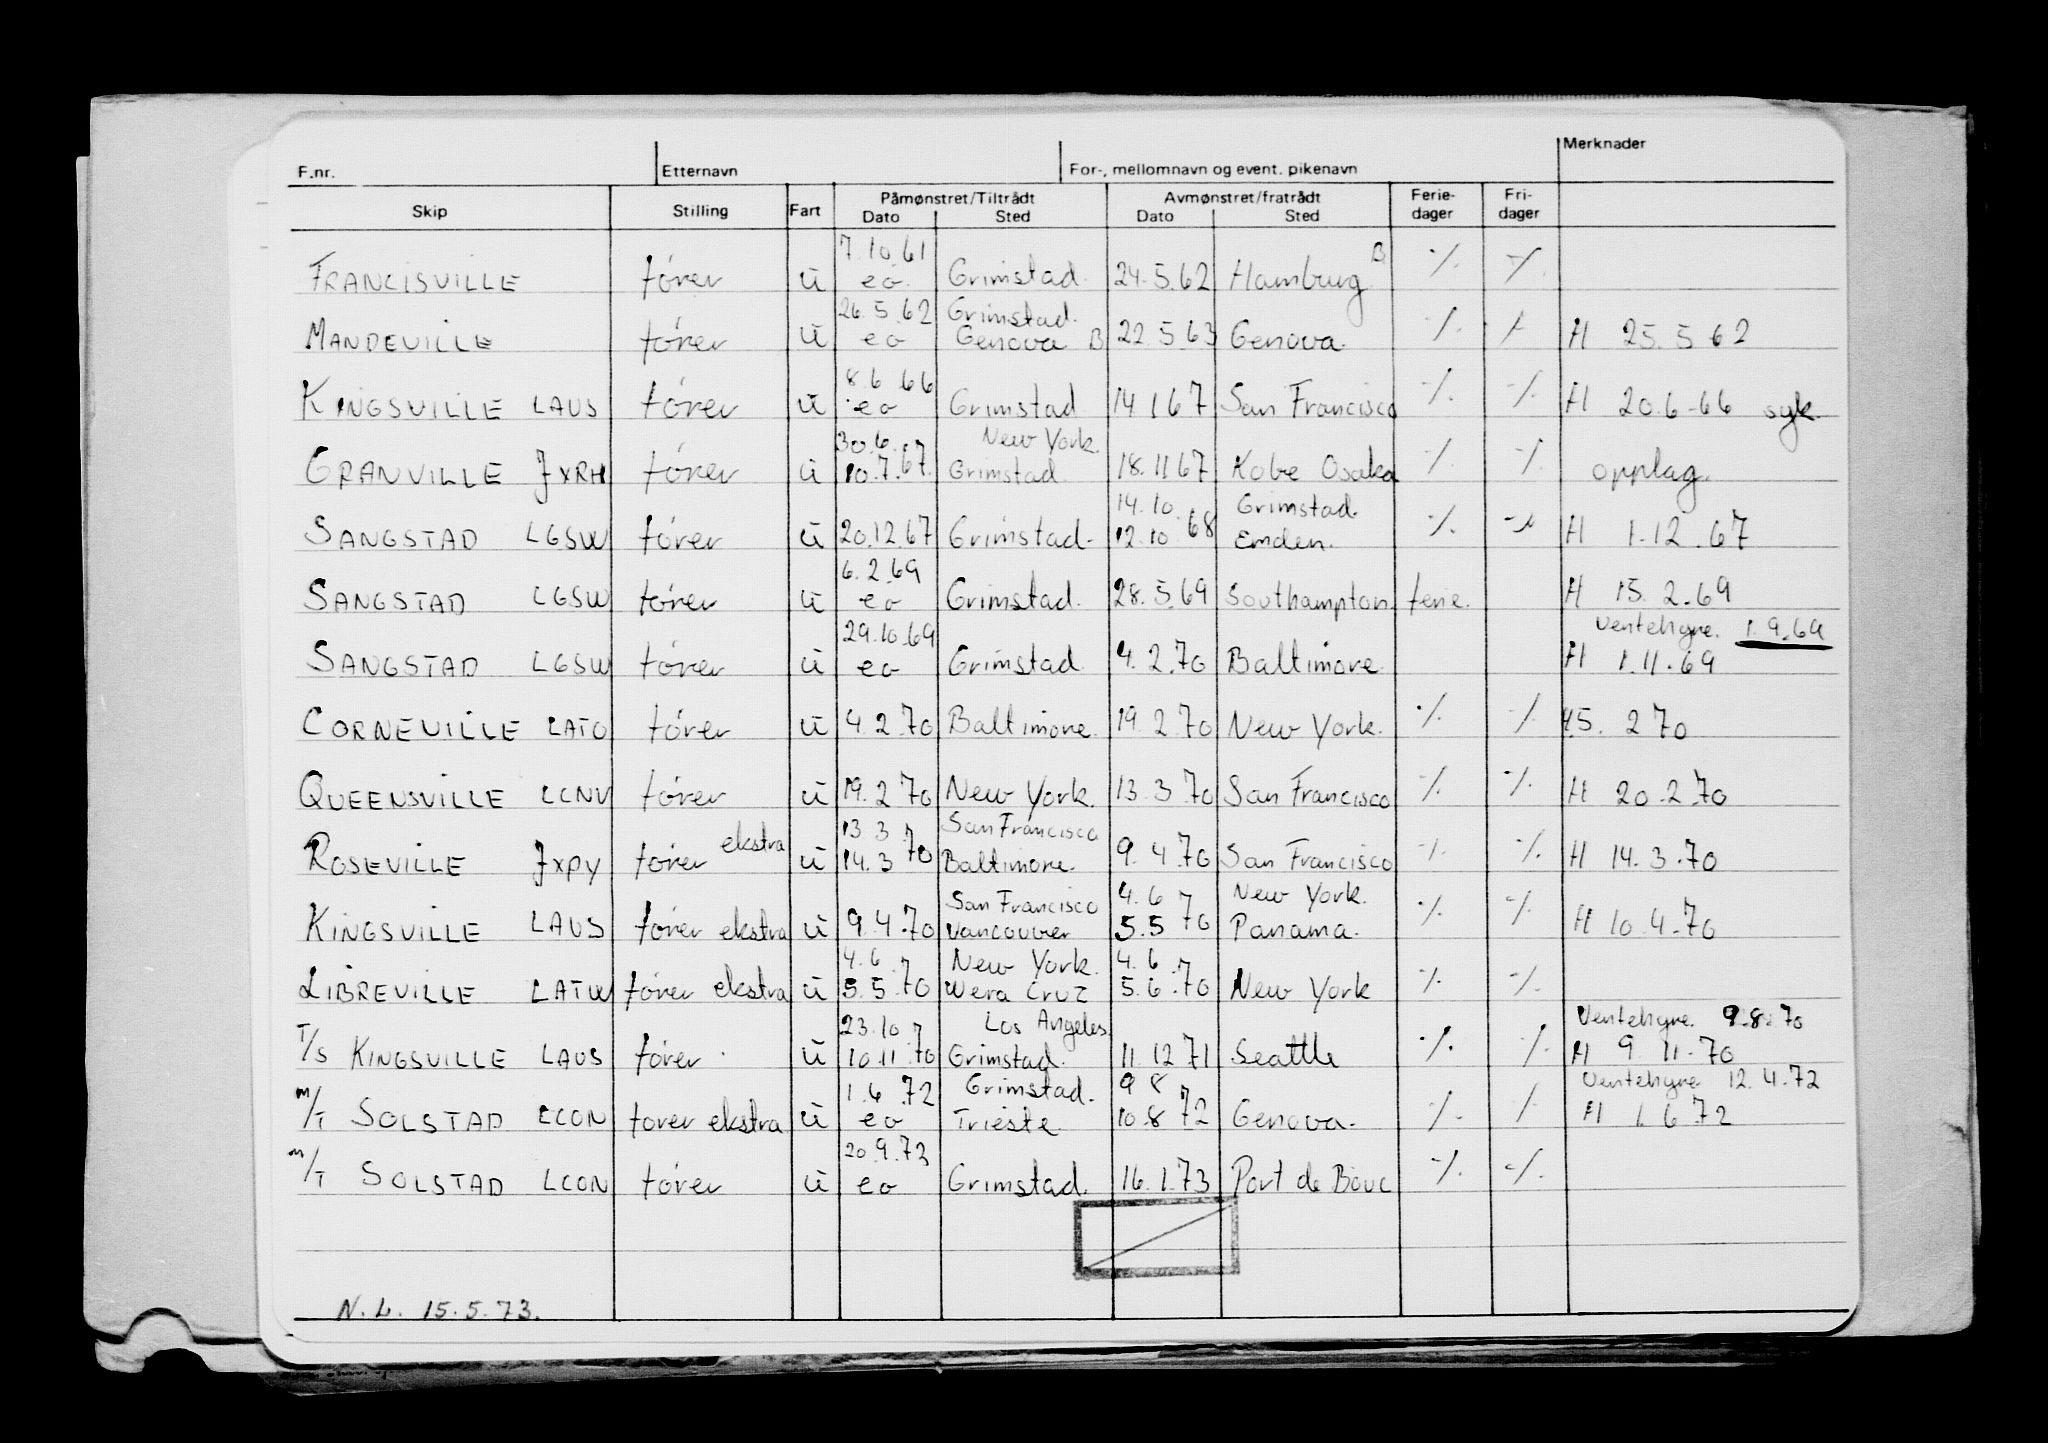 F.nr. Etternavn For-, mellomnavn og event. pikenavn Merknader
Skip Stilling Fart Påmønstret/Tiltrådt Avmønstret/fratrådt Ferie- Fri-
Dato Sted Dato Sted dager dager
7.10.61 B
FRANCISVILLE fører u eo Grimstad. 24.5.62 Hamburg ·/. ·/.
26.5.62 Grimstad.
MANDEVILLE fører u eo Genova B 22.5.63 Genova. ·/. ·/. H 25.5 62
8.6 66
KINGSVILLE LAUS fører u eo Grimstad 14 1 67 San Francisco ·/. ·/. H 20.6-66 syk
30.6. New York.
GRANVILLE JXRH fører u 10.7.67. Grimstad. 18.11 67 Kobe Osaka ·/. ·/. opplag.
14.10. Grimstad.
SANGSTAD LGSW fører u 20.12.67 Grimstad. 12.10.68 Emden. ·/. ·/. H 1.12.67
6.2.69
SANGSTAD LGSW fører u eo Grimstad. 28.5.69 Southampton ferie. H 15.2.69
29.10.69 Ventehyre. 1.9.69
SANGSTAD LGSW fører u eo Grimstad 4.2.70 Baltimore. H 1.11.69
CORNEVILLE LATO fører u 4.2.70 Baltimore. 19.2.70 New York. ·/. ·/. 45. 2 70
QUEENSVILLE LCNV fører u 19.2.70 New York. 13.3.70 San Francisco ·/. ·/. H 20.2.70
ekstra 13.3 San Francisco
ROSEVILLE JXPY fører u 14.3 70 Baltimore. 9.4.70 San Francisco ·/. ·/. H 14.3.70
San Francisco 4.6 New York.
KINGSVILLE LAUS fører ekstra u 9.4.70 Vancouver 5.5 70 Panama. ·/. ·/. H 10.4.70
4.6. New York. 4.6
LIBREVILLE LATW fører ekstra u 5.5.70 Wera Cruz 5.6.70 New York ·/. ·/.
23.10 Los Angeles. Ventehyre. 9.8.70
T/S KINGSVILLE LAUS fører u 10.11.70 Grimstad. 11.12 71 Seattle ·/. ·/. H 9.11.70
1.6.72 Grimstad. 9 8 Ventehyre 12.4.72
M/T SOLSTAD LCON fører ekstra u eo Trieste 10.8 72 Genova. ·/. ·/. H 1.6.72
20.9.73
M/T SOLSTAD LCON fører u eo Grimstad. 16.1.73 Port de Bouc ·/. ·/.
N.L. 15.5.73.